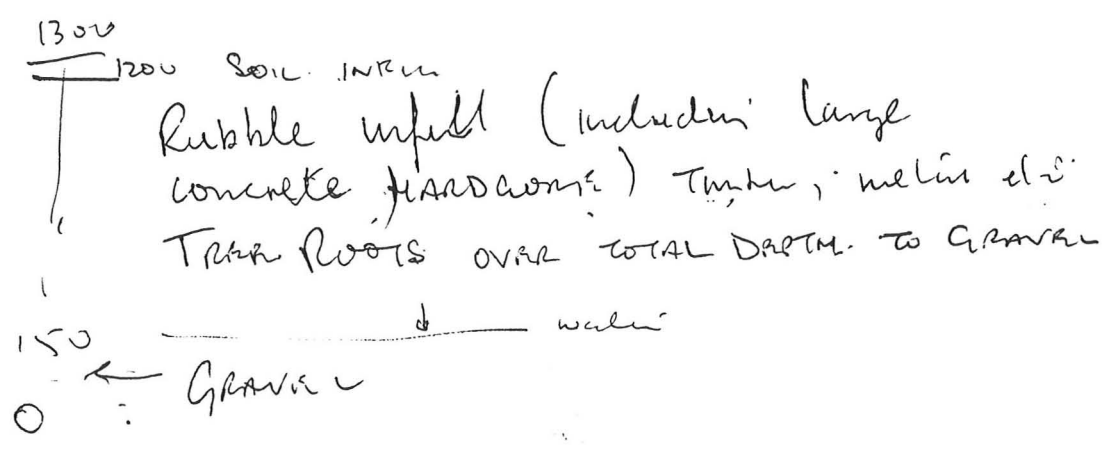 1300
1200 SOIL INFILL
Rubble infill (including large
concrete, HARDCORE) Timber, metal etc
TREE ROOTS OVER TOTAL DEPTH. TO GRAVEL
150 water
← GRAVEL
0